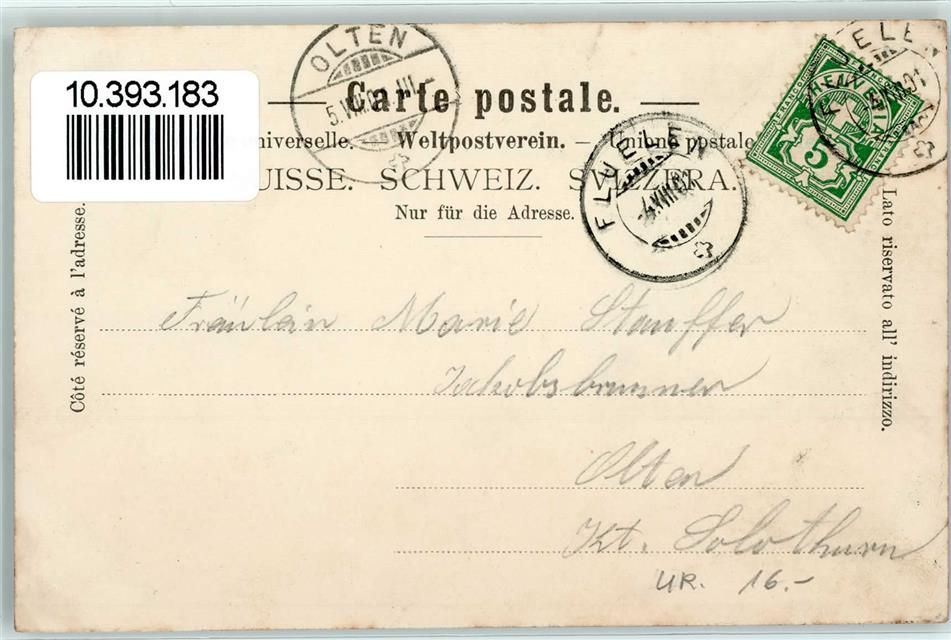 OLTEN
10.393.183
Carte postale.
universelle. — Weltpostverein. — Unione postale
SUISSE. SCHWEIZ. SVIZZERA.
Nur für die Adresse.
FLUELEN
HELVETIA
FRANCO
5
Côté réservé à l'adresse.
Lato riservato all' indirizzo.
Fräulein Marie Stauffer
Jakobsbrunnen
Olten
Kt. Solothurn
UR. 16.-